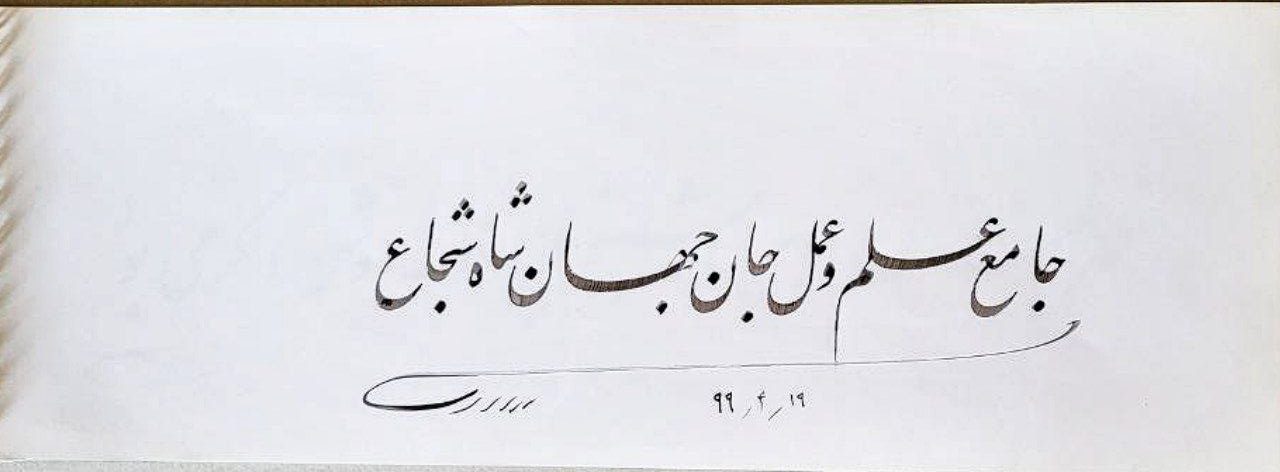 جامع علم و عمل جان جهان شاه شجاع
۱۹ ر ۴ ر ۹۹